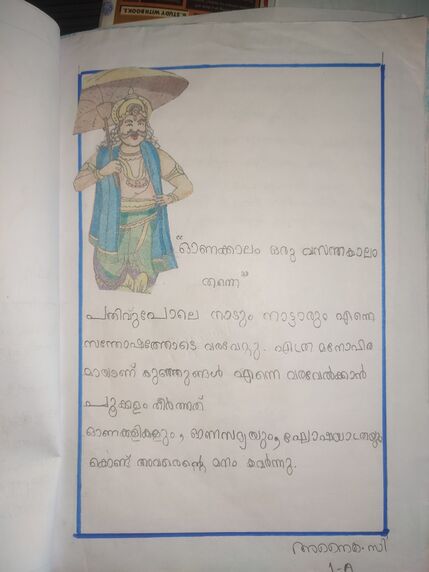 & STUDY WITH BOOKS
"ഓണക്കാലം ഒരു വസന്തകാലം
തന്നെ"
പതിവുപോലെ നാടും നാട്ടാരും എന്നെ
സന്തോഷത്തോടെ വരവേറ്റു. എത്ര മനോഹര
മായാണ് കുഞ്ഞുങ്ങൾ എന്നെ വരവേൽക്കാൻ
പൂക്കളം തീർത്തത്
ഓണക്കളികളും, ഓണസദ്യയും, ഘോഷയാത്രയും
കൊണ്ട് അവരെന്റെ മനം കവർന്നു.
സി
1-A